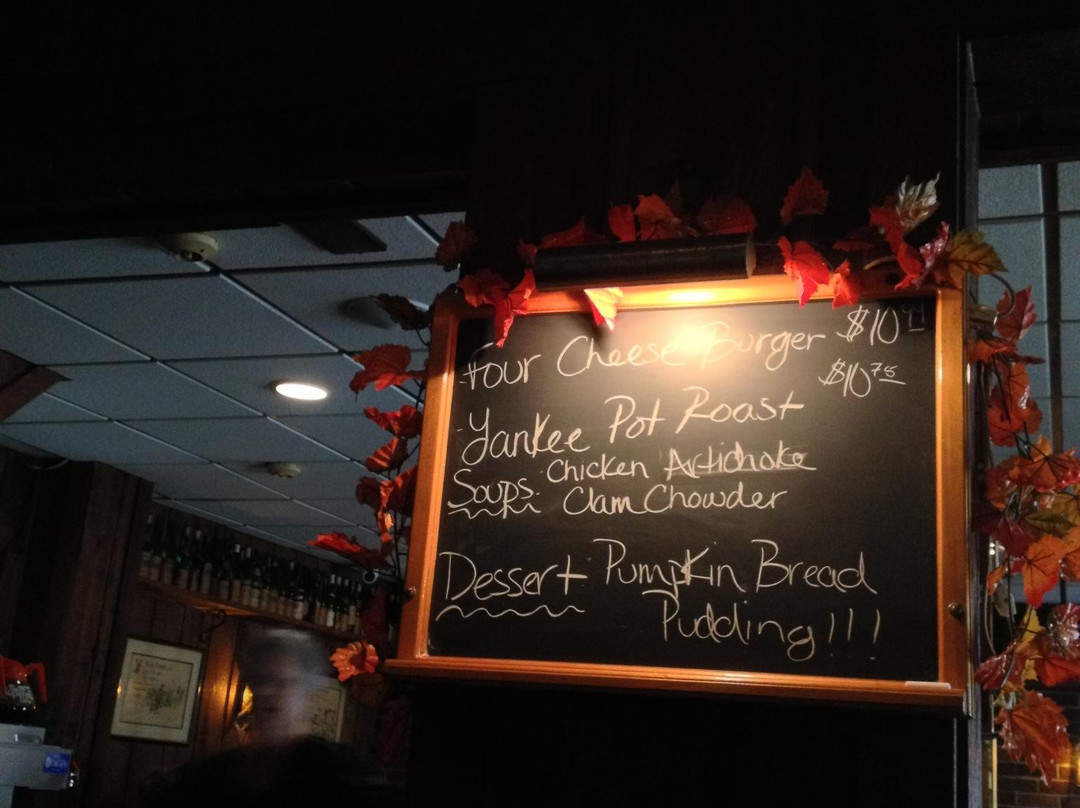 Four Cheese Burger $10
Yankee Pot Roast $10 75
Soups. Chicken Artichoke
Clam Chowder
Dessert Pumpkin Bread
Pudding!!!